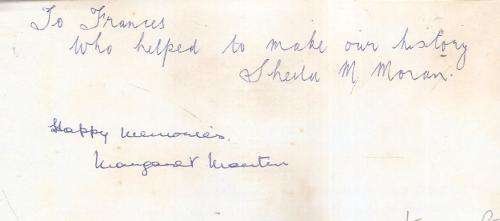 To Frances
Who helped to make our history
Sheila M. Moran.
Happy Memories.
Margaret